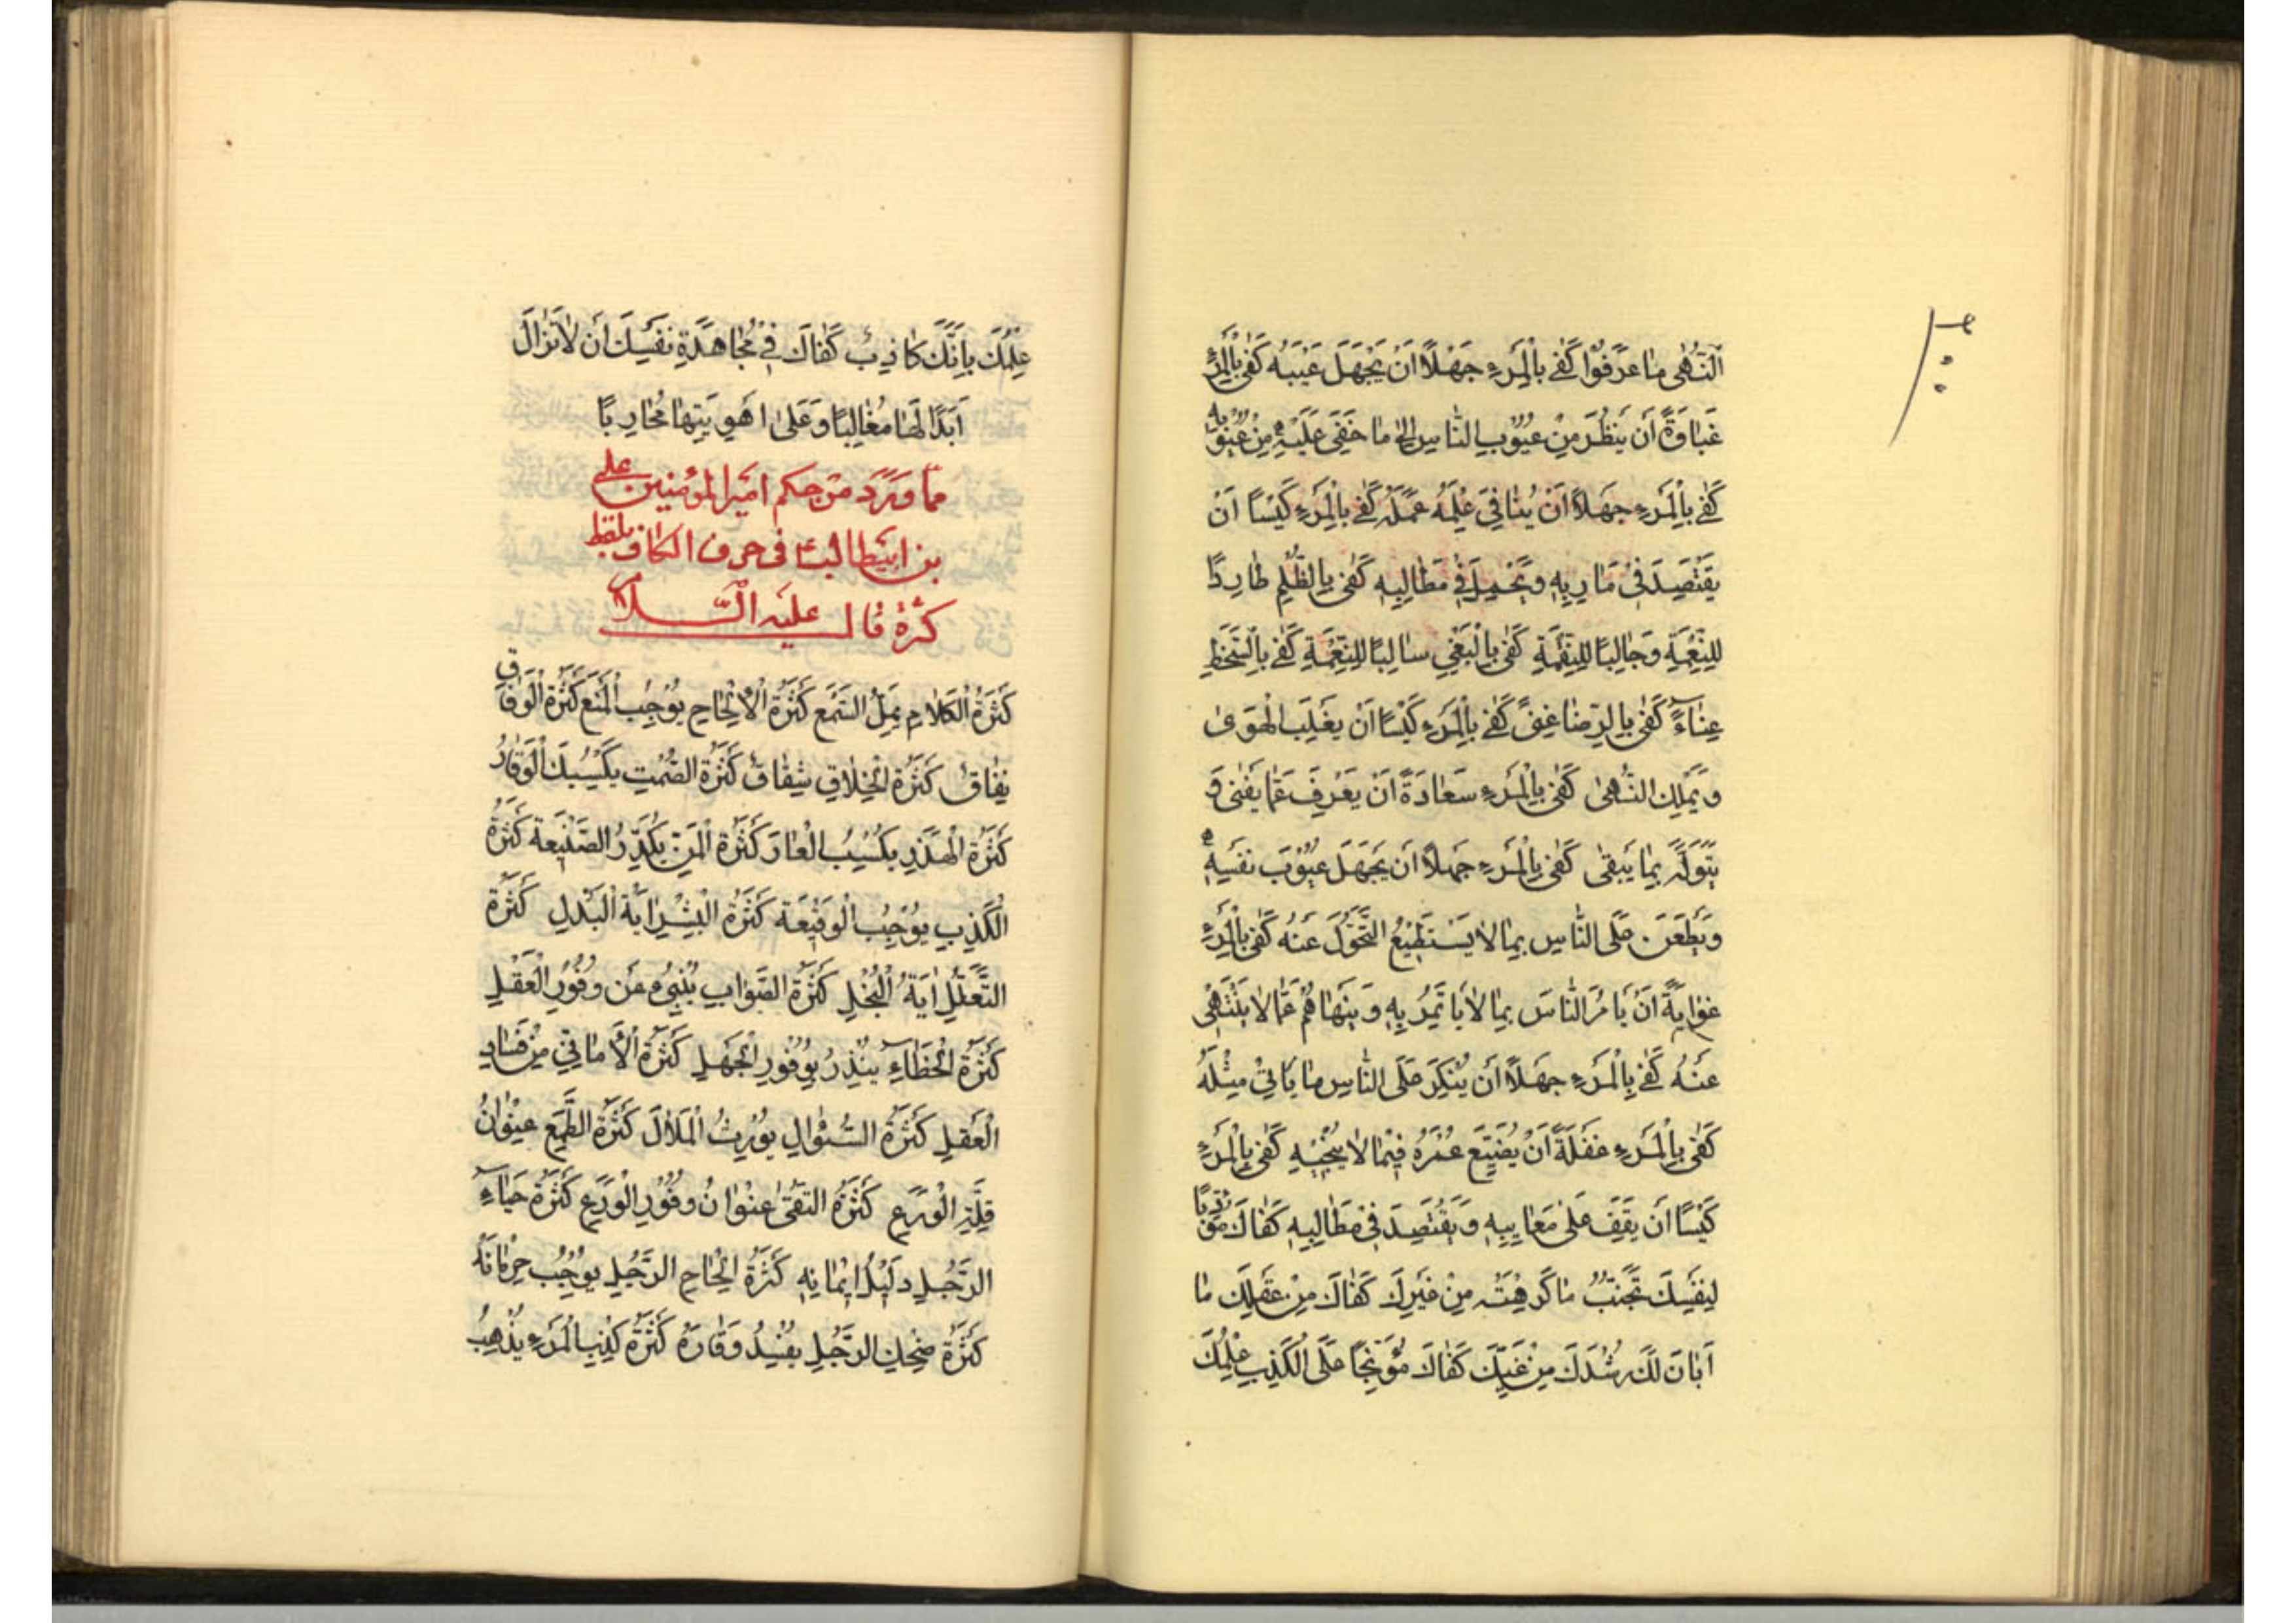 النُّهٰى مَا عَرَفُوا كَفٰى بِالْمَرْءِ جَهْلًا اَنْ يَجْهَلَ عَيْبَهُ كَفٰى بِالْمَرْءِ
غَبَاوَةً اَنْ يَنْظُرَ مِنْ عُيُوبِ النَّاسِ اِلٰى مَا خَفِيَ عَلَيْهِ مِنْ عُيُوبِهِ
كَفٰى بِالْمَرْءِ جَهْلًا اَنْ يُنَافِيَ عِلْمَهُ عَمَلُهُ كَفٰى بِالْمَرْءِ كَيْسًا اَنْ
يَقْتَصِدَ فِي مَارِبِهِ وَيُجْمِلَ فِي مَطَالِبِهِ كَفٰى بِالظُّلْمِ طَارِدًا
لِلنِّعْمَةِ وَجَالِبًا لِلنِّقْمَةِ كَفٰى بِالْبَغْيِ سَالِبًا لِلنِّعْمَةِ كَفٰى بِالسَّخَطِ
عِنَاءً كَفٰى بِالرِّضَا غِنًى كَفٰى بِالْمَرْءِ كَيْسًا اَنْ يَغْلِبَ الْهَوٰى
وَ يَمْلِكَ النُّهٰى كَفٰى بِالْمَرْءِ سَعَادَةً اَنْ يَعْرِفَ عَمَّا يَفْنٰى وَ
يَتَوَلَّهَ بِمَا يَبْقٰى كَفٰى بِالْمَرْءِ جَهْلًا اَنْ يَجْهَلَ عُيُوبَ نَفْسِهِ
وَيَطْعَنَ عَلَى النَّاسِ بِمَا لَا يَسْتَطِيعُ التَّحَوُّلَ عَنْهُ كَفٰى بِالْمَرْءِ
غَوَايَةً اَنْ يَامُرَ النَّاسَ بِمَا لَا يَاتَمِرُ بِهِ وَ يَنْهَاهُمْ عَمَّا لَا يَنْتَهِي
عَنْهُ كَفٰى بِالْمَرْءِ جَهْلًا اَنْ يُنْكِرَ عَلَى النَّاسِ مَا يَاتِي مِثْلَهُ
كَفٰى بِالْمَرْءِ غَفْلَةً اَنْ يُضَيِّعَ عُمْرَهُ فِيمَا لَا يُنْجِيهِ كَفٰى بِالْمَرْءِ
كَيْسًا اَنْ يَقِفَ عَلٰى مَعَايِبِهِ وَ يَقْتَصِدَ فِي مَطَالِبِهِ كَفَاكَ مُؤَدِّبًا
لِنَفْسِكَ تَجَنُّبُ مَا كَرِهْتَهُ مِنْ غَيْرِكَ كَفَاكَ مِنْ عَقْلِكَ مَا
اَبَانَ لَكَ رُشْدَكَ مِنْ غَيِّكَ كَفَاكَ مُوَبِّخًا عَلَى الْكَذِبِ عِلْمُكَ
عِلْمُكَ بِاَنَّكَ كَاذِبٌ كَفَاكَ فِي مُجَاهَدَةِ نَفْسِكَ اَنْ لَا تَزَالَ
اَبَدًا لَهَا مُغَالِبًا وَ عَلٰى اَهْوِيَتِهَا مُحَارِبًا
مما ورد من حكم امير المؤمنين علي
بن ابيطالب ع فى حرف الكاف بلفظ
كثرة قال عليه السلام
كَثْرَةُ الْكَلَامِ يُمِلُّ السَّمْعَ كَثْرَةُ الْاِلْحَاحِ يُوجِبُ الْمَنْعَ كَثْرَةُ الْوِفَاقِ
نِفَاقٌ كَثْرَةُ الْخِلَافِ شِقَاقٌ كَثْرَةُ الصَّمْتِ يَكْسِبُكَ الْوَقَارُ
كَثْرَةُ الْهَذَرِ يَكْسِبُ الْعَارَ كَثْرَةُ الْمَنِّ يُكَدِّرُ الصَّنِيعَةَ كَثْرَةُ
الْكَذِبِ يُوجِبُ الْوَقِيعَةَ كَثْرَةُ الْبِشْرِ اٰيَةُ الْبَذْلِ كَثْرَةُ
التَّعَلُّلِ اٰيَةُ الْبُخْلِ كَثْرَةُ الصَّوَابِ يُنْبِئُ عَنْ وُفُورِ الْعَقْلِ
كَثْرَةُ الْخَطَاءِ يُنْذِرُ بِوُفُورِ الْجَهْلِ كَثْرَةُ الْاَمَانِيِّ مِنْ فَسَادِ
الْعَقْلِ كَثْرَةُ السُّؤَالِ يُورِثُ الْمَلَالَ كَثْرَةُ الطَّمَعِ عُنْوَانُ
قِلَّةِ الْوَرَعِ كَثْرَةُ التُّقٰى عُنْوَانُ وُفُورِ الْوَرَعِ كَثْرَةُ حَيَاءِ
الرَّجُلِ دَلِيلُ اِيمَانِهِ كَثْرَةُ اِلْحَاحِ الرَّجُلِ يُوجِبُ حِرْمَانَهُ
كَثْرَةُ ضِحْكِ الرَّجُلِ يُفْسِدُ وَقَارَهُ كَثْرَةُ كَذِبِ الْمَرْءِ يُذْهِبُ